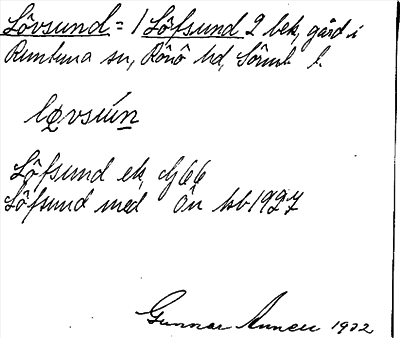 Lövsund = 1 Löfsund 2 bek, gård i
Rumbuna sn, Rönö hd, Sörml l.
lǫvsún
Löfsund ek, dj 66
Löfsund med Ön hb 1927
Gunnar 1932